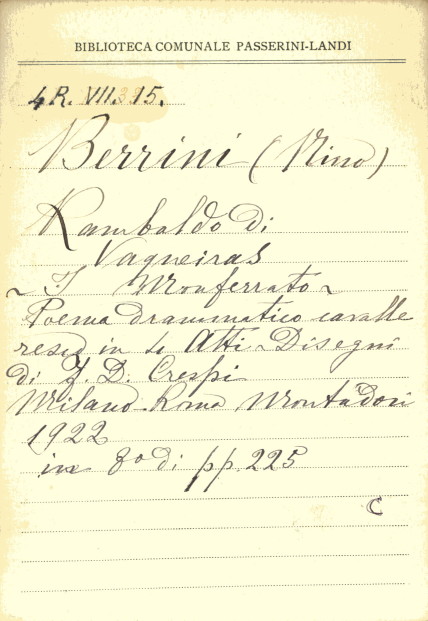 BIBLIOTECA COMUNALE PASSERINI-LANDI
4 R. VII. 15.
Berrini (Nino)
Rambaldo di
Vaqueiras
~ I Monferrato ~
Poema drammatico cavalle
resco in 4 Atti ~ Disegni
di Crespi
Milano-Roma Montadori
1922
in 8º di pp. 225
C